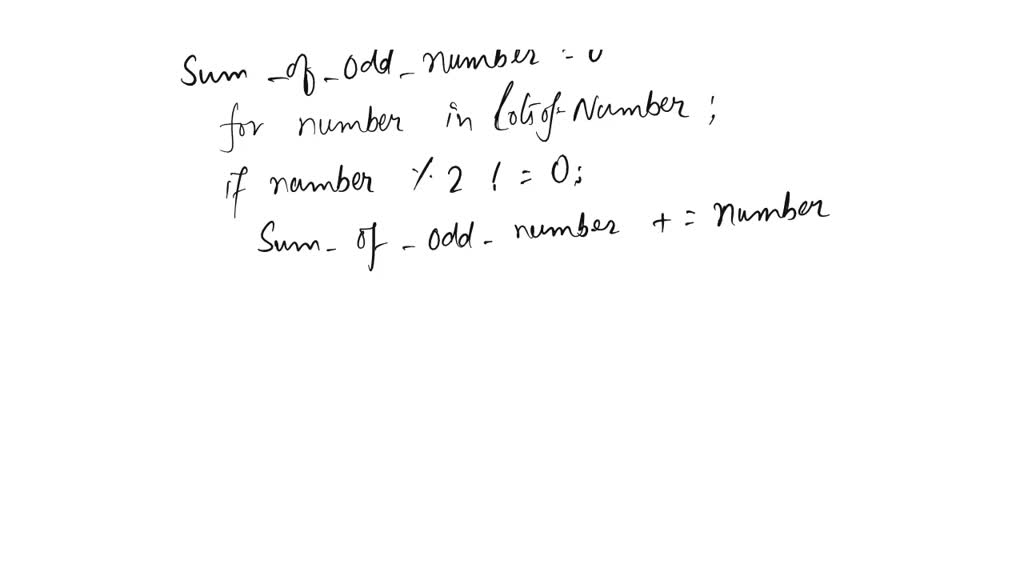 Sum_of_odd_number = 0
for number in LotsofNumber ;
if number % 2 ! = 0;
Sum_of_odd_number + = number